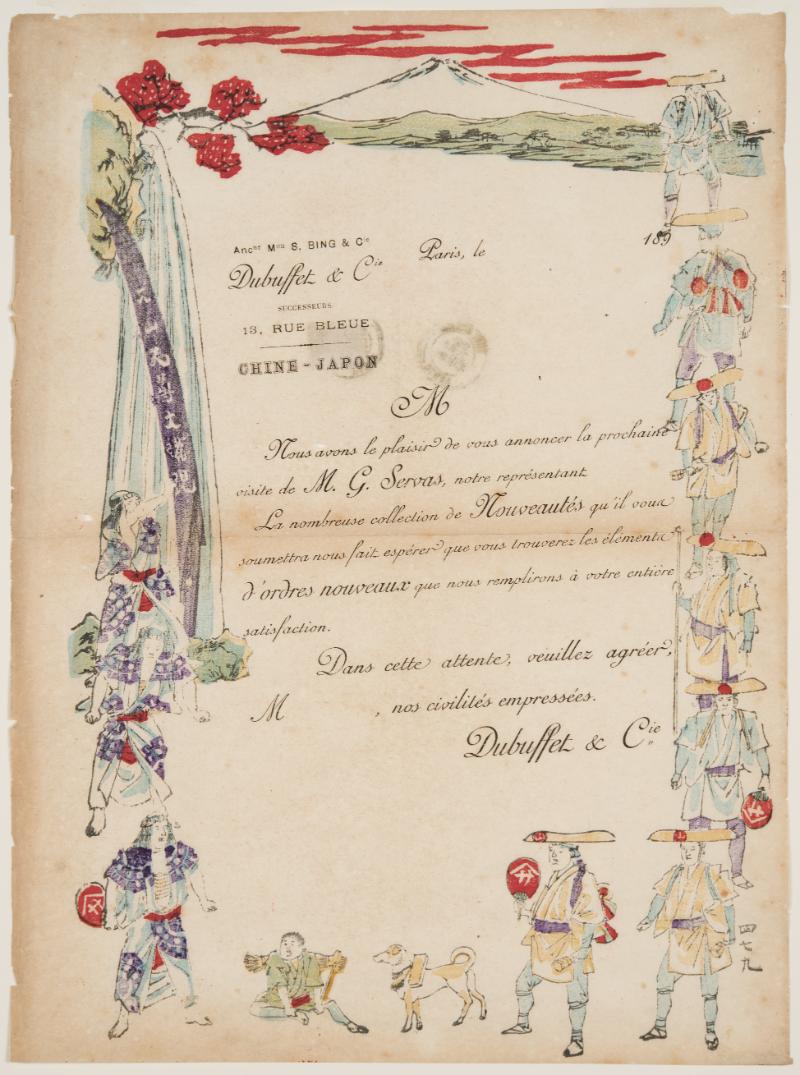 Anc^ne M^on S. BING & C^ie
Dubuffet & C^ie
SUCCESSEURS
13, RUE BLEUE
CHINE - JAPON
Paris, le 189
M
Nous avons le plaisir de vous annoncer la prochaine
visite de M. G. Servas, notre représentant
La nombreuse collection de Nouveautés qu'il vous
soumettra nous fait espérer que vous trouverez les éléments
d'ordres nouveaux que nous remplirons à votre entière
satisfaction.
Dans cette attente, veuillez agréer,
M , nos civilités empressées.
Dubuffet & C^ie
四七九